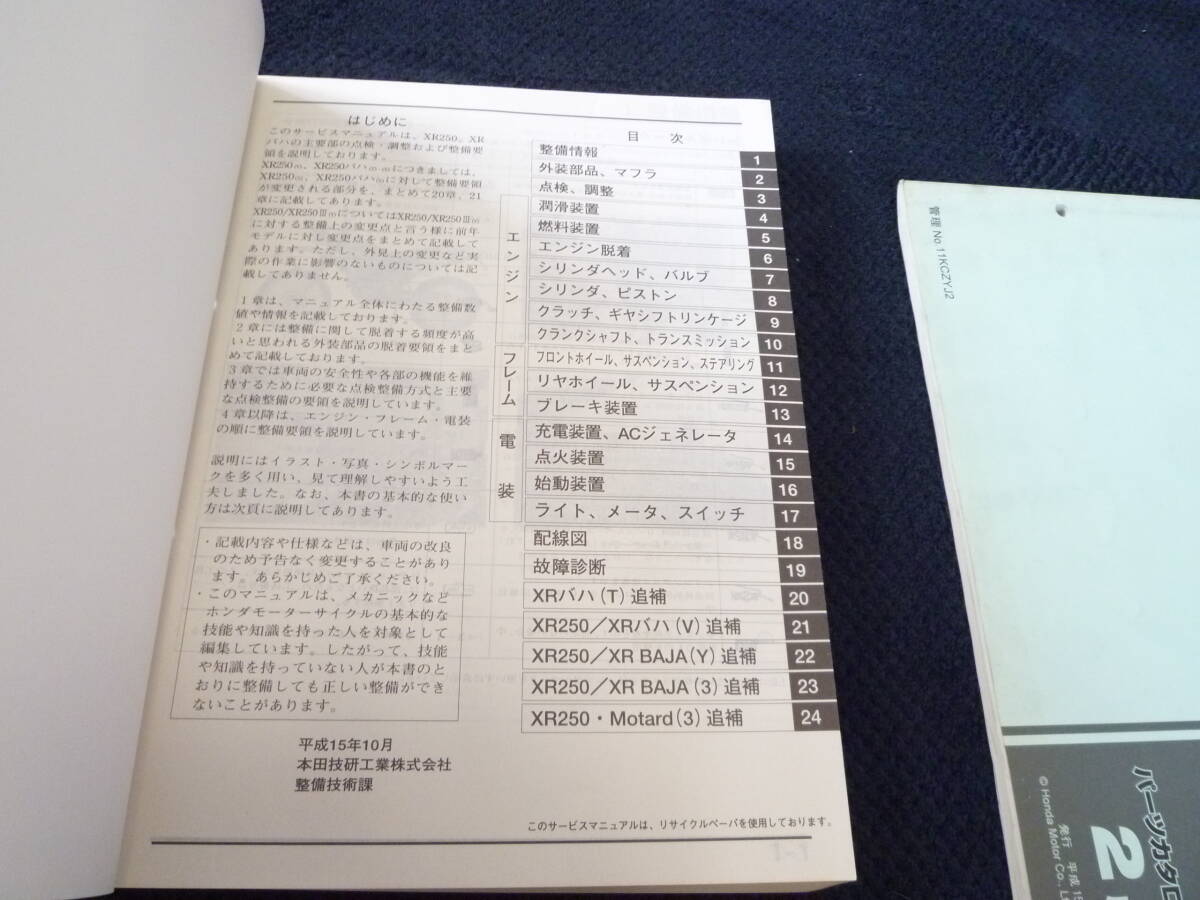 はじめに
このサービスマニュアルは、XR250、XR
バハの主要部の点検・調整および整備要
領を説明しております。
につきましては、
に対して整備要領
が変更される部分を、まとめて20章、21
章に記載してあります。
についてはXR250/XR250
に対する整備上の変更点と言う様に前年
モデルに対し変更点をまとめて記載して
あります。ただし、外見上の変更など実
際の作業に影響のないものについては記
載してありません。
1章は、マニュアル全体にわたる整備数
値や情報を記載しております。
2章には整備に関して脱着する頻度が高
いと思われる外装部品の脱着要領をまと
めて記載しております。
3章では車両の安全性や各部の機能を維
持するために必要な点検整備方式と主要
な点検整備の要領を説明しています。
4章以降は、エンジン・フレーム・電装
の順に整備要領を説明しています。
説明にはイラスト・写真・シンボルマー
クを多く用い、見て理解しやすいよう工
夫しました。なお、本書の基本的な使い
方は次頁に説明してあります。
・記載内容や仕様などは、車両の改良
のため予告なく変更することがあり
ます。あらかじめご了承ください。
・このマニュアルは、メカニックなど
ホンダモーターサイクルの基本的な
技能や知識を持った人を対象として
編集しています。したがって、技能
や知識を持っていない人が本書のと
おりに整備しても正しい整備ができ
ないことがあります。
平成15年10月
本田技研工業株式会社
整備技術課
目次
整備情報 1
外装部品、マフラ 2
点検、調整 3
エンジン
潤滑装置 4
燃料装置 5
エンジン脱着 6
シリンダヘッド、バルブ 7
シリンダ、ピストン 8
クラッチ、ギヤシフトリンケージ 9
クランクシャフト、トランスミッション 10
フレーム
フロントホイール、サスペンション、ステアリング 11
リヤホイール、サスペンション 12
ブレーキ装置 13
電装
充電装置、ACジェネレータ 14
点火装置 15
始動装置 16
ライト、メータ、スイッチ 17
配線図 18
故障診断 19
XRバハ(T)追補 20
XR250／XRバハ(V)追補 21
XR250／XR BAJA(Y)追補 22
XR250／XR BAJA(3)追補 23
XR250・Motard(3)追補 24
このサービスマニュアルは、リサイクルペーパを使用しております。
管理 No.11KCZYJ2
パーツカタロ
2
発行 平成 15
© Honda Motor Co., L